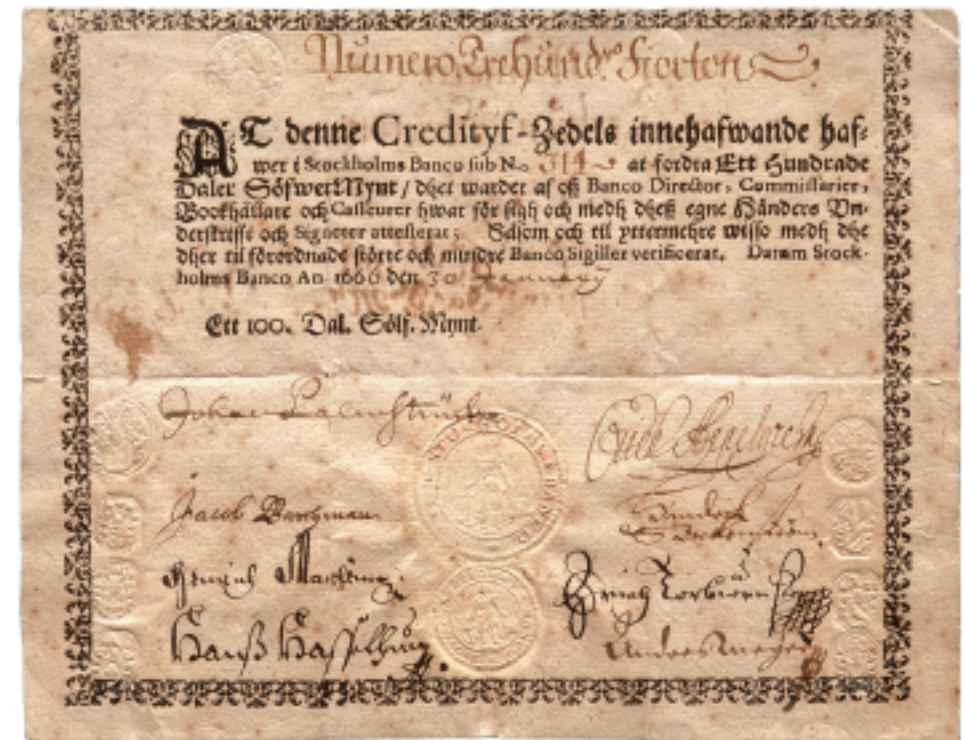 Numero Trehund. Fiorton
AT denne Credityf-Zedels innehafwande haf-
wer i Stockholms Banco sub No. 314 at fordra Ett Hundrade
Daler SölfwerMynt / dhet warder af oß Banco Director, Commissarier,
Bookhållare och Casseurer hwar för sigh och medh dheß egne Händers Vn-
derskrifft och Signeter attesterat; Såsom och til yttermehre wisso medh dhe
dher til förordnade större och mindre Banco Sigiller verificerat. Datum Stock-
holms Banco An. 1666 den 30 January
Ett 100. Dal. Sölf. Mynt.
Johan Palmstruch
Jacob
Hinrich
Hanß
Anders Meyer